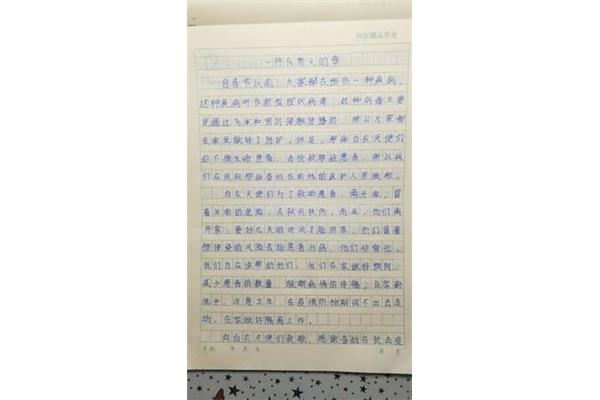 一件有意义的事
自春节以前，大家都在预防一种疾病，
这种疾病叫作新型冠状病毒，这种病毒主要
是通过飞沫和密切接触传播的，所以大家都
在家里做好了防护，但是，那些白衣天使们
却不顾生命危险，去抢救那些患者，所以我
们应该向那些奋战在前线的医护人员致敬。
白衣天使们为了救助患者，离开家，冒
着生命的危险，去救死扶伤，而且，他们离
开家，要好几天的时间才能回来，他们冒着
被传染的风险去给患者治病，他们非常壮，
我们也应该帮助他们，我们在家做好预防，
减少患者的数量，阻断病情的传播，在家勤
洗手，注意卫生，在疫情防控期间不出去走
动，在家做好隔离工作。
向白衣天使们致敬，感谢奋战在抗击疫